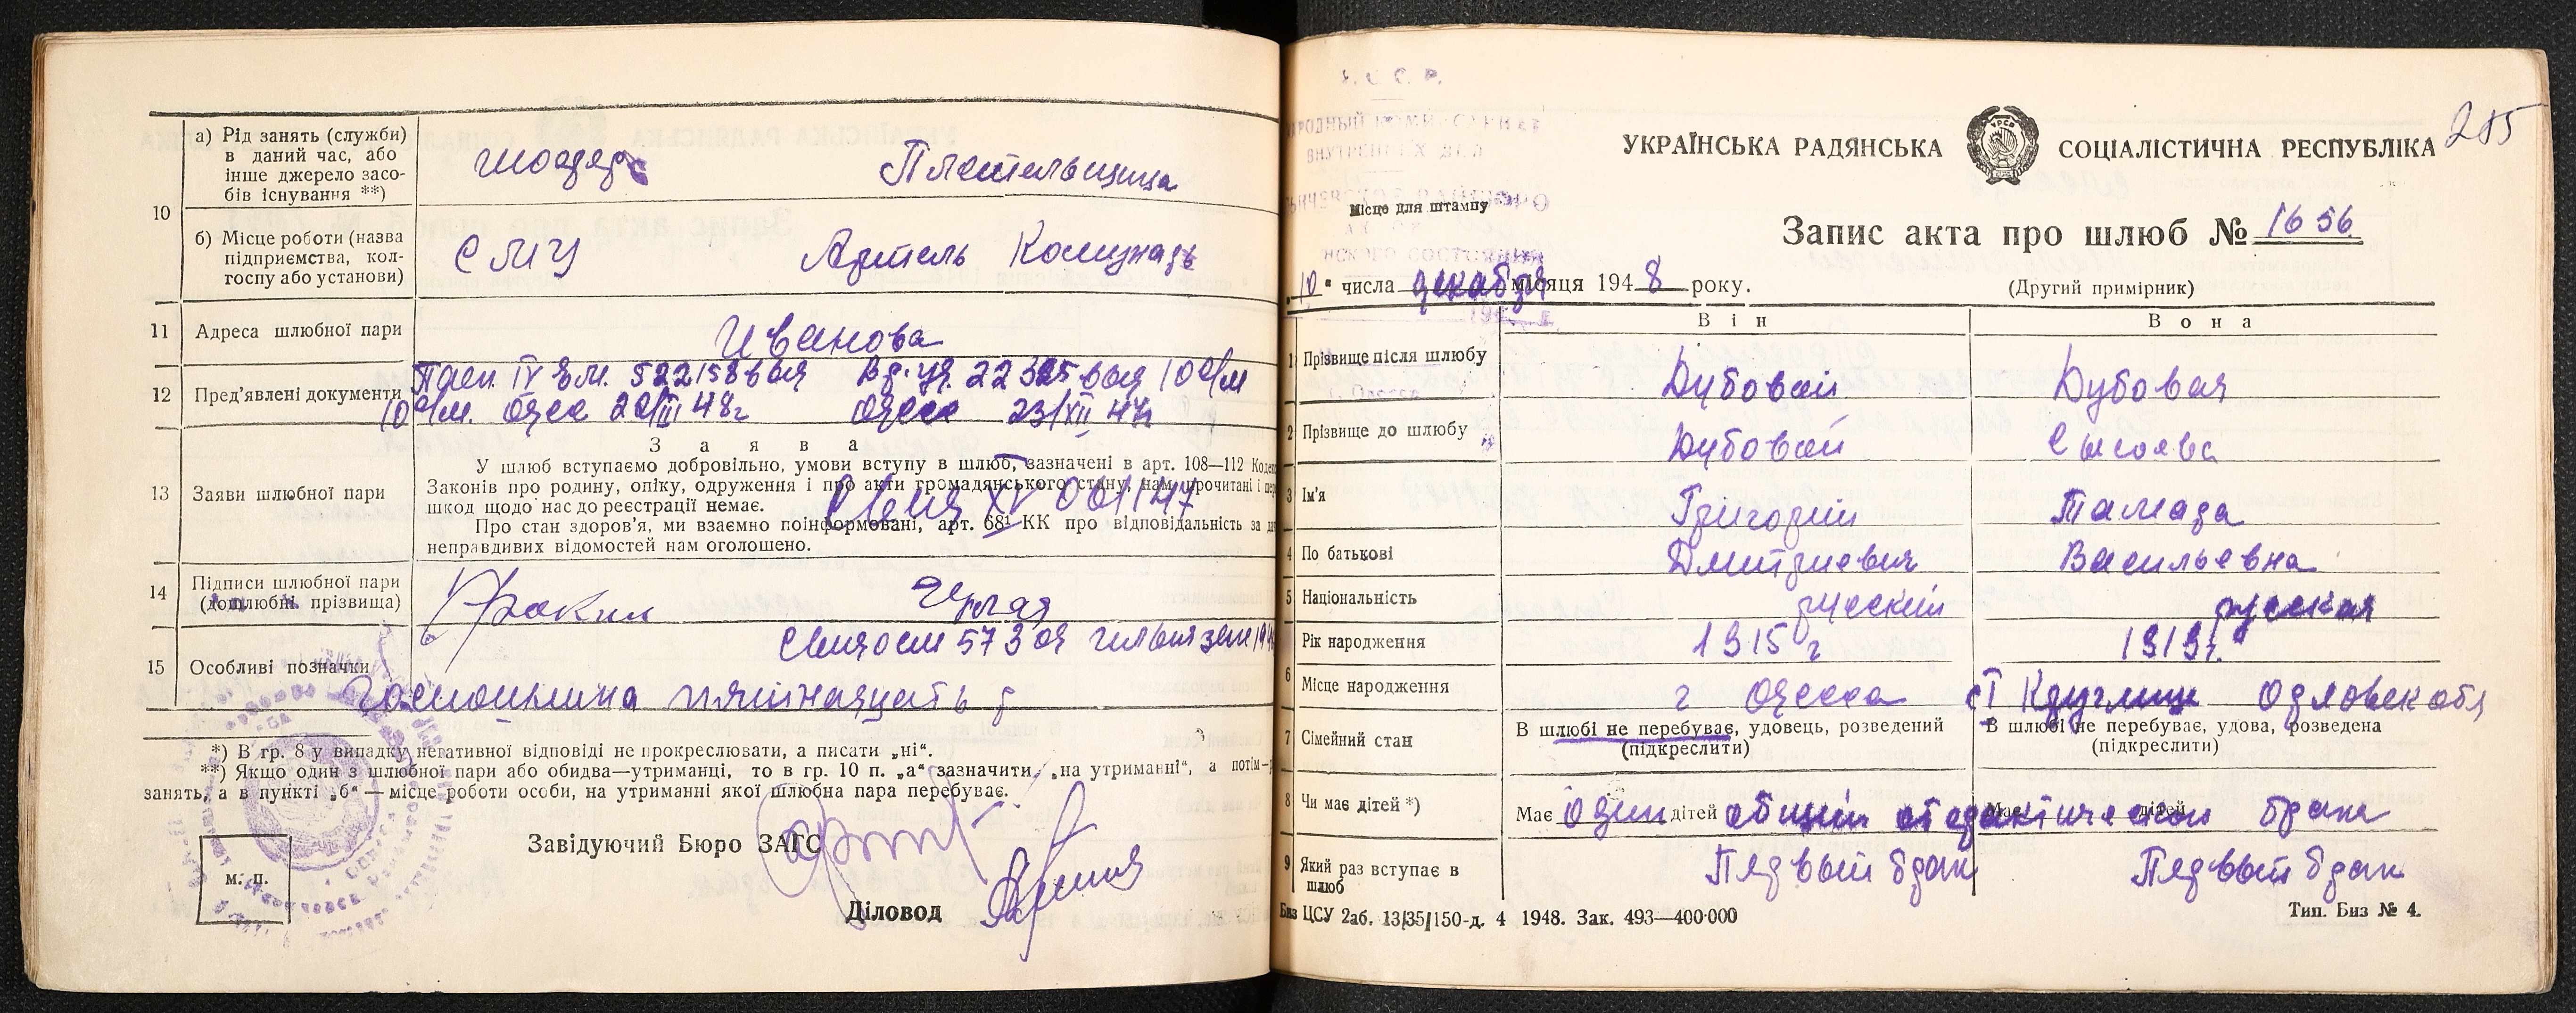 10
а) Рід занять (служби)
в даний час, або
інше джерело засо-
бів існування **)
б) Місце роботи (назва
підприємства, кол-
госпу або установи)
СМУ
Артель
11
Адреса шлюбної пари
Иванова
12
Пред'явлені документи
Пасп. IV ЯМ. 522158 выд 22325 выд 10 о/м
10 о/м. Одес 20/III 48г Одесс 23/XII 47г
13
Заяви шлюбної пари
Заява
У шлюб вступаємо добровільно, умови вступу в шлюб, зазначені в арт. 108—112 Кодек
Законів про родину, опіку, одруження і про акти громадянського стану, нам прочитані і пе
шкод щодо нас до реєстрації немає.
Про стан здоров'я, ми взаємно поінформовані, арт. 68¹ КК про відповідальність за
неправдивих відомостей нам оголошено.
XV 061147
14
Підписи шлюбної пари
(дошлюбні прізвища)
15
Особливі позначки
пятнадцать р
*) В гр. 8 у випадку негативної відповіді не прокреслювати, а писати „ні“.
**) Якщо один з шлюбної пари або обидва—утриманці, то в гр. 10 п. „а“ зазначити „на утриманні“, а потім—
занять, а в пункті „б“ — місце роботи особи, на утриманні якої шлюбна пара перебуває.
м. п.
Завідуючий Бюро ЗАГС
Діловод
285
УКРАЇНСЬКА РАДЯНСЬКА СОЦІАЛІСТИЧНА РЕСПУБЛІКА
Місце для штампу
Запис акта про шлюб № 1656
„10“ числа декабря місяця 1948 року.
(Другий примірник)
Він Вона
1 Прізвище після шлюбу Дубовой Дубовая
2 Прізвище до шлюбу Дубовой Сысоева
3 Ім'я Григорий Тамара
4 По батькові Дмитриевич Васильевна
5 Національність русский русская
6 Рік народження 1915 г 1919 г.
Місце народження г Одесса ст Орловск обл
7 Сімейний стан
В шлюбі не перебуває, удовець, розведений
(підкреслити)
В шлюбі не перебуває, удова, розведена
(підкреслити)
8 Чи має дітей *) Має Один дітей общий от фактическ брак
9 Який раз вступає в
шлюб
Первый брак Первый брак
Биз ЦСУ 2аб. 13/35/150-д. 4 1948. Зак. 493—400·000
Тип. Биз № 4.